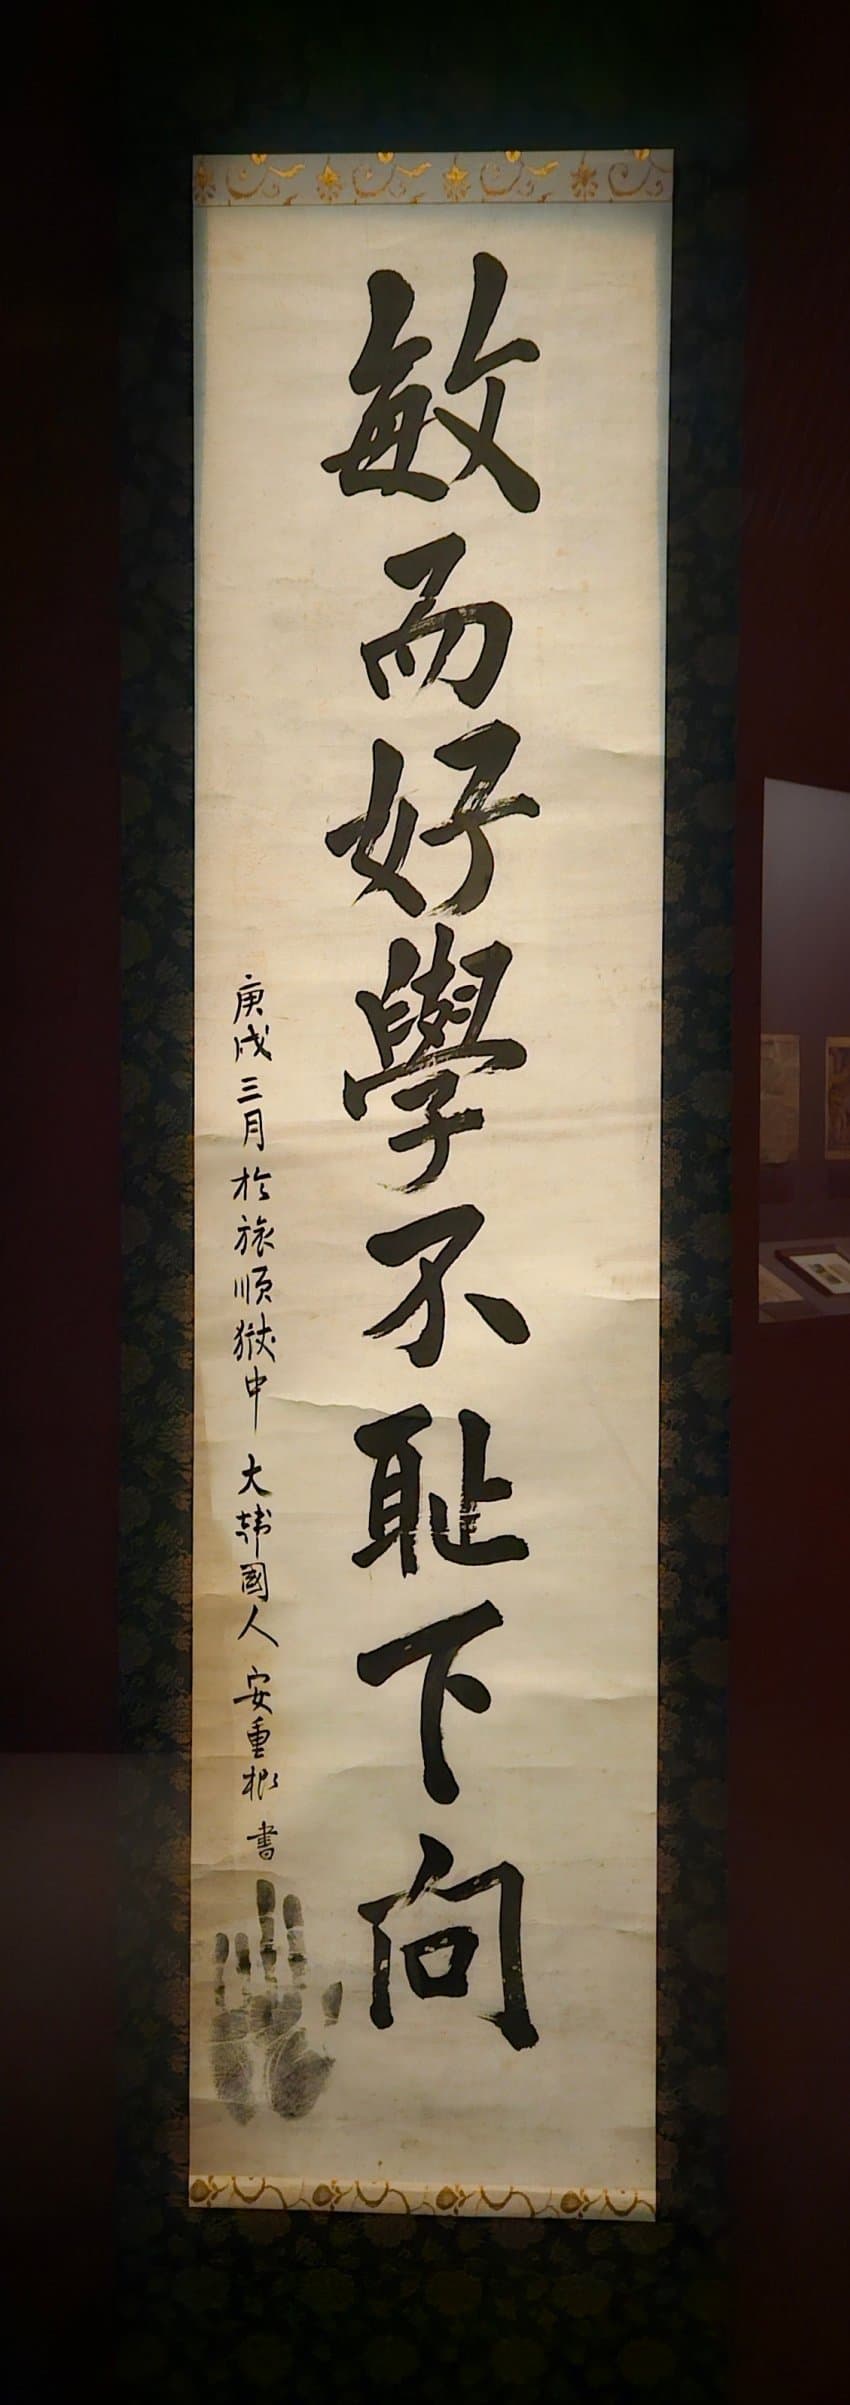 敏而好學不恥下向
庚戌三月 於旅順獄中 大韓國人 安重根 書